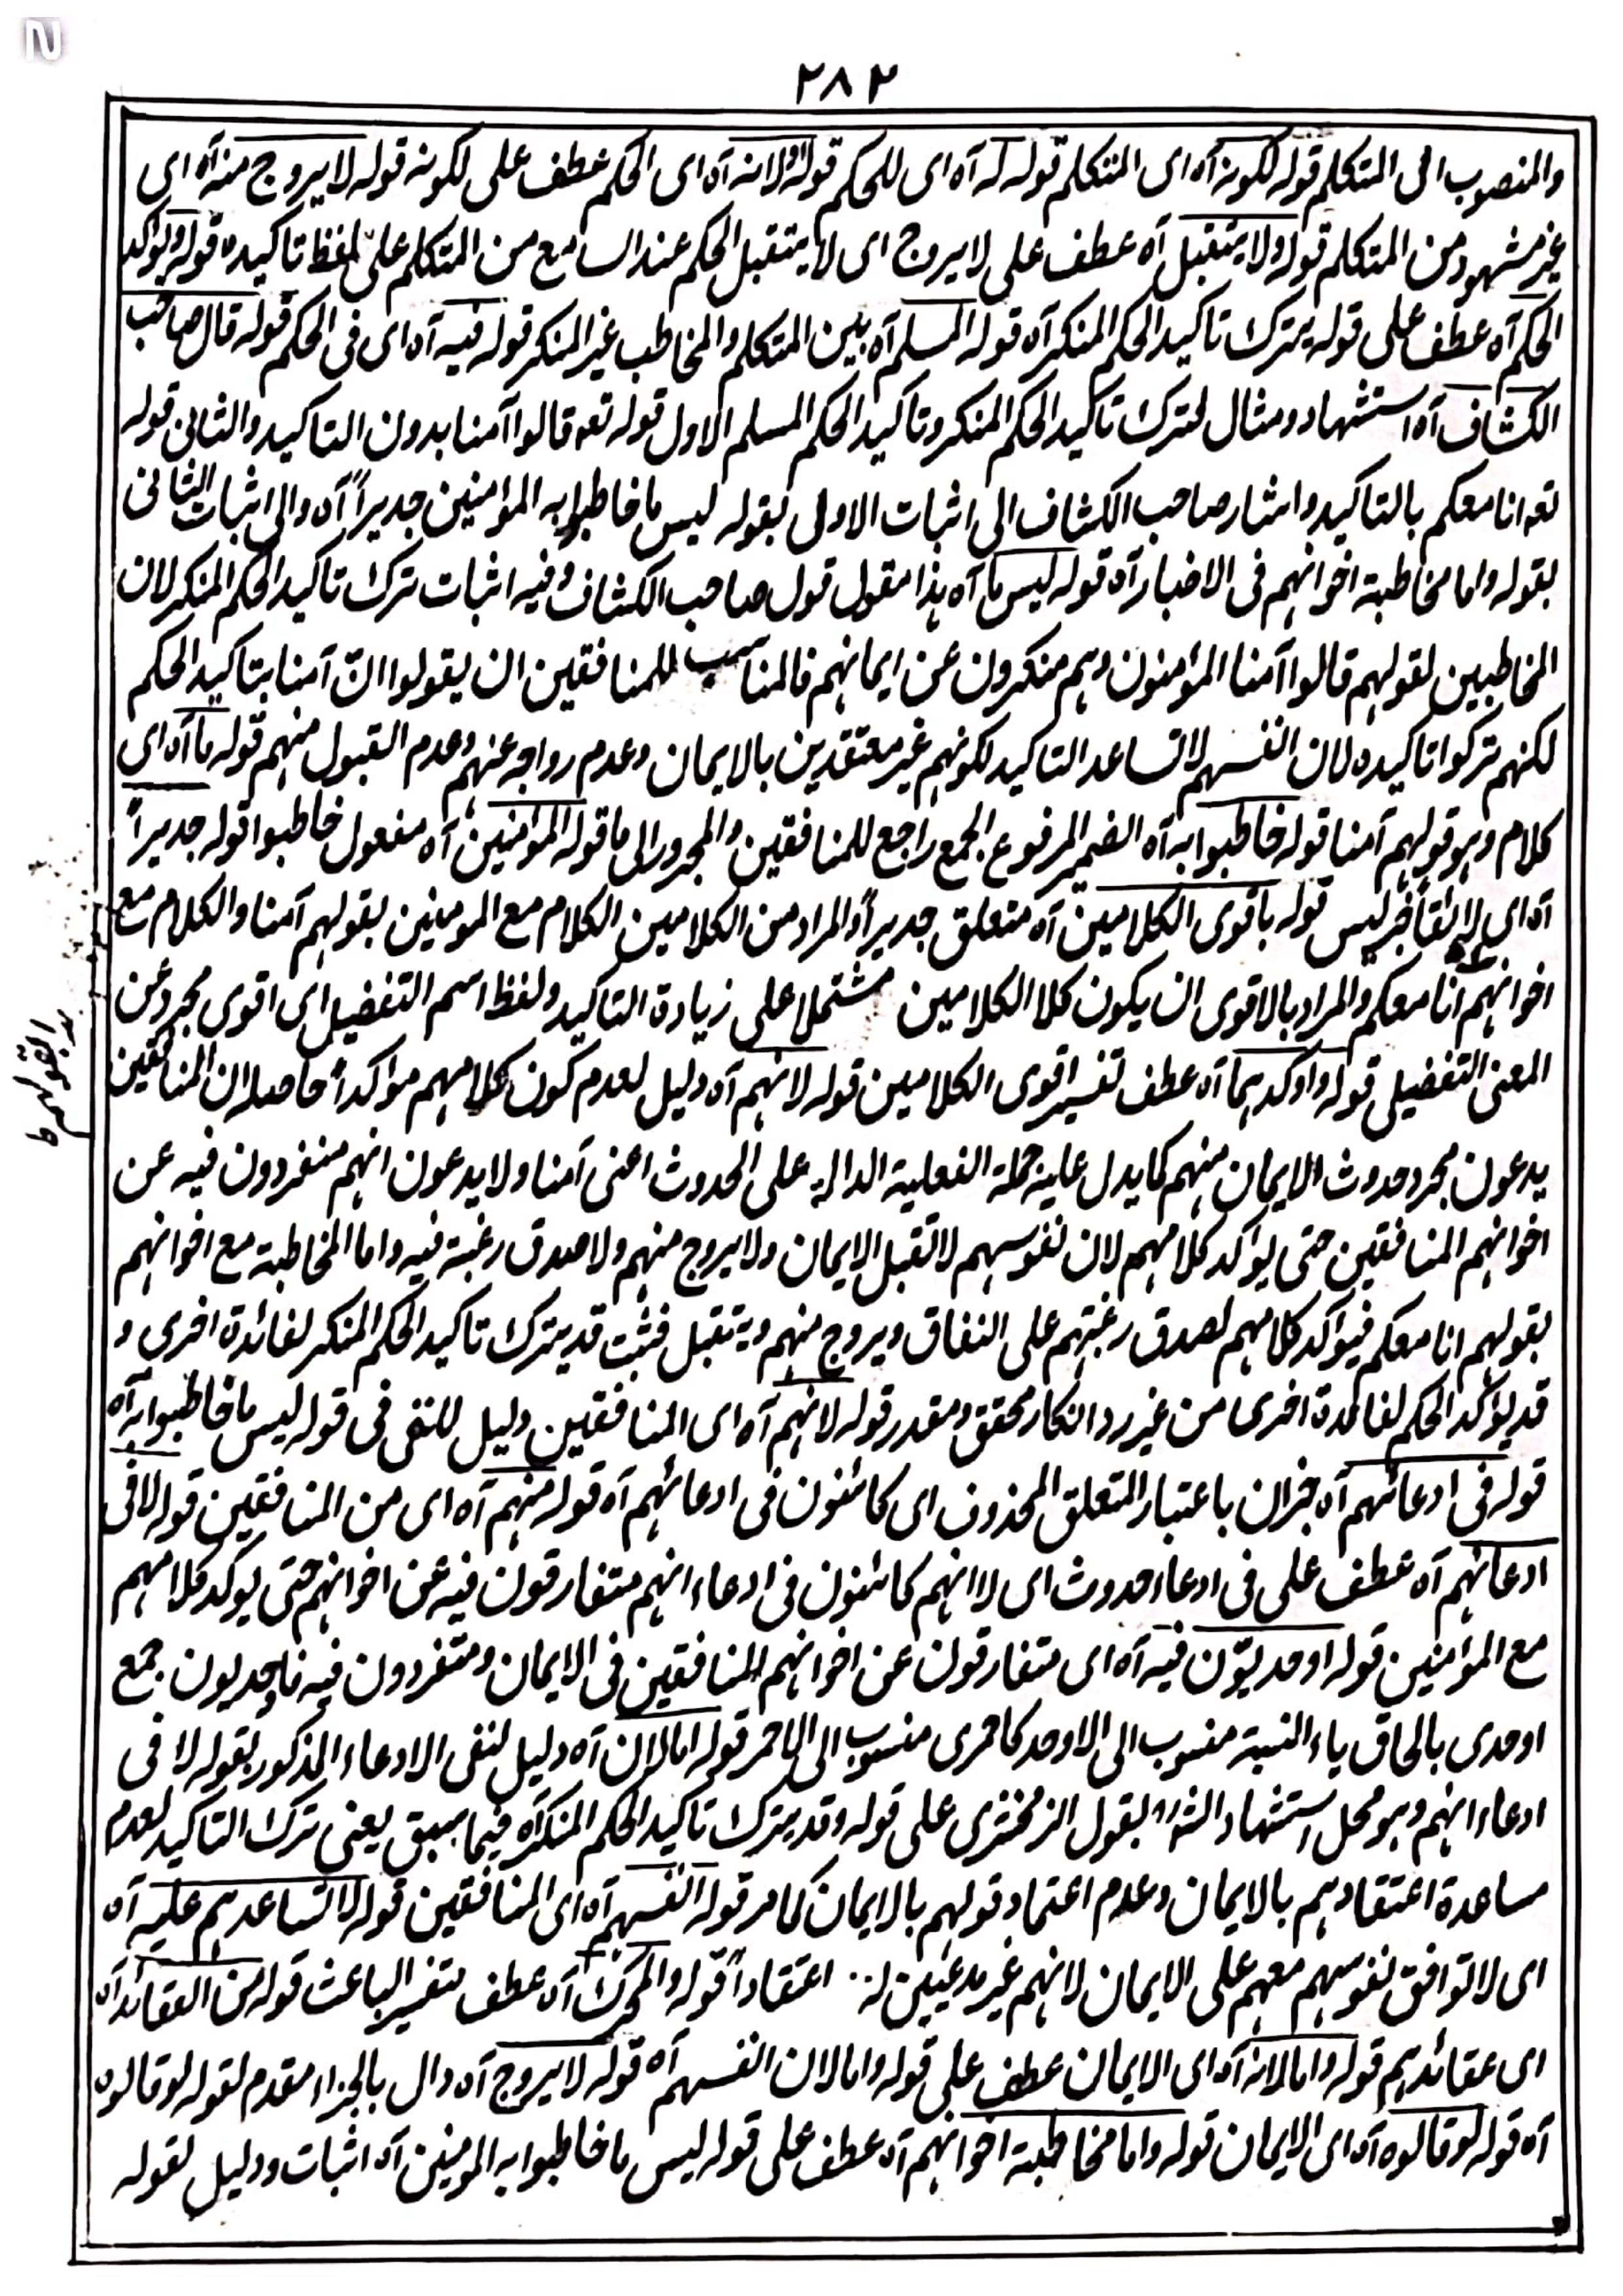 N
٢٨٢
والمنصوب الى المتكلم قوله لكونه آه اى المتكلم قوله له آه اى للحكم قوله او لانه آه اى الحكم عطف على لكونه قوله لا يروج منه آه اى
غير مشهود من المتكلم قوله ولا يتقبل آه عطف على لا يروج اى لا يتقبل الحكم عند السامع من المتكلم على لفظ تاكيده قوله ويؤكد
الحكم آه عطف على قوله يترك تاكيد الحكم المنكر آه قوله المسلم آه بين المتكلم والمخاطب غير المنكر قوله فيه آه اى فى الحكم قوله قال صاحب
الكشاف آه استشهاد ومثال لترك تاكيد الحكم المنكر وتاكيد الحكم المسلم الاول قوله تعه قالوا آمنا بدون التاكيد والثانى قوله
تعه انا معكم بالتاكيد واشار صاحب الكشاف الى اثبات الاولى بقوله ليس ما خاطبوا به المؤمنين جديراً آه والى اثبات الثانى
بقوله واما مخاطبة اخوانهم فى الاخبار آه قوله ليس ما آه هذا مقول قول صاحب الكشاف وفيه اثبات ترك تاكيد الحكم المنكر لان
المخاطبين لقولهم قالوا آمنا المؤمنون وهم منكرون عن ايمانهم فالمناسب للمنافقين ان يقولوا انّ آمنا بتاكيد الحكم
لكنهم تركوا تاكيده لان انفسهم لا تساعد التاكيد لكونهم غير معتقدين بالايمان وعدم رواجه عنهم وعدم القبول منهم قوله ما آه اى
كلام وهو قولهم آمنا قوله خاطبوا به آه الضمير المرفوع الجمع راجع للمنافقين والمجرور الى ما قوله المؤمنين آه مفعول خاطبوا قوله جديراً
آه اى لائقاً خبر ليس قوله باقوى الكلامين آه متعلق جديراً والمراد من الكلامين الكلام مع المومنين بقولهم آمنا والكلام مع
اخوانهم انا معكم والمراد بالاقوى ان يكون كلا الكلامين مشتملا على زيادة التاكيد ولفظ اسم التفضيل اى اقوى مجرد عن
المعنى التفضيلى قوله واوكدهما آه عطف تفسير اقوى الكلامين قوله لانهم آه دليل لعدم كون كلامهم مواكداً حاصله ان المنافقين
يدعون مجرد حدوث الايمان منهم كما يدل عليه جملة الفعلية الدالة على الحدوث اعنى آمنا ولا يدعون انهم منفردون فيه عن
اخوانهم المنافقين حتى يؤكد كلامهم لان نفوسهم لا تقبل الايمان ولا يروج منهم ولا صدق رغبة فيه واما المخاطبة مع اخوانهم
بقولهم انا معكم فيؤكد كلامهم لصدق رغبتهم على النفاق ويروج منهم ويتقبل فثبت قد يترك تاكيد الحكم المنكر لفائدة اخرى و
قد يؤكد الحكم لفائدة اخرى من غير رد انكار محقق ومقدر قوله لانهم آه اى المنافقين دليل للنفى فى قوله ليس ما خاطبوا به آه
قوله فى ادعائهم آه خبر ان باعتبار المتعلق المحذوف اى كائنون فى ادعائهم آه قوله منهم آه اى من المنافقين قوله لا فى
ادعائهم آه عطف على فى ادعاء حدوث اى لا انهم كائنون فى ادعاء انهم متفارقون فيه عن اخوانهم حتى يوكد كلامهم
مع المؤمنين قوله اوحديّون فيه آه اى متفارقون عن اخوانهم المنافقين فى الايمان ومتفردون فيه فاوحديون جمع
اوحدى بالحاق ياء النسبة منسوب الى الاوحد كاحمرى منسوب الى الاحمر قوله اما لان آه دليل لنفى الادعاء المذكور بقوله لا فى
ادعاء انهم وهو محل استشهاد الشارح بقول الزمخشرى على قوله وقد يترك تاكيد الحكم المنكر آه فيما سبق يعنى ترك التاكيد لعدم
مساعدة اعتقادهم بالايمان وعدم اعتماد قولهم بالايمان كما مر قوله انفسهم آه اى المنافقين قوله لا تساعدهم عليه آه
اى لا توافق نفوسهم معهم على الايمان لانهم غير مدعيين له اعتقاداً قوله والمحرك آه عطف تفسير الباعث قوله من العقائد آه
اى عقائدهم قوله واما لانه آه اى الايمان عطف على قوله واما لان انفسهم آه قوله لا يروج آه دال بالجزاء مقدم لقوله لو قالوه
آه قوله لو قالوه آه اى الايمان قوله واما مخاطبة اخوانهم آه عطف على قوله ليس ما خاطبوا به المومنين آه اثبات ودليل لقوله